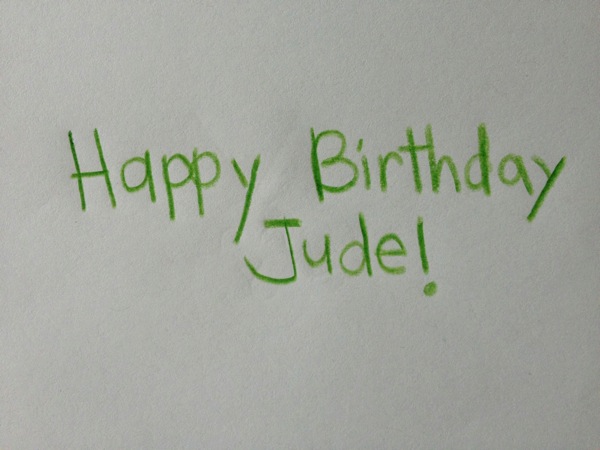 Happy Birthday
Jude!